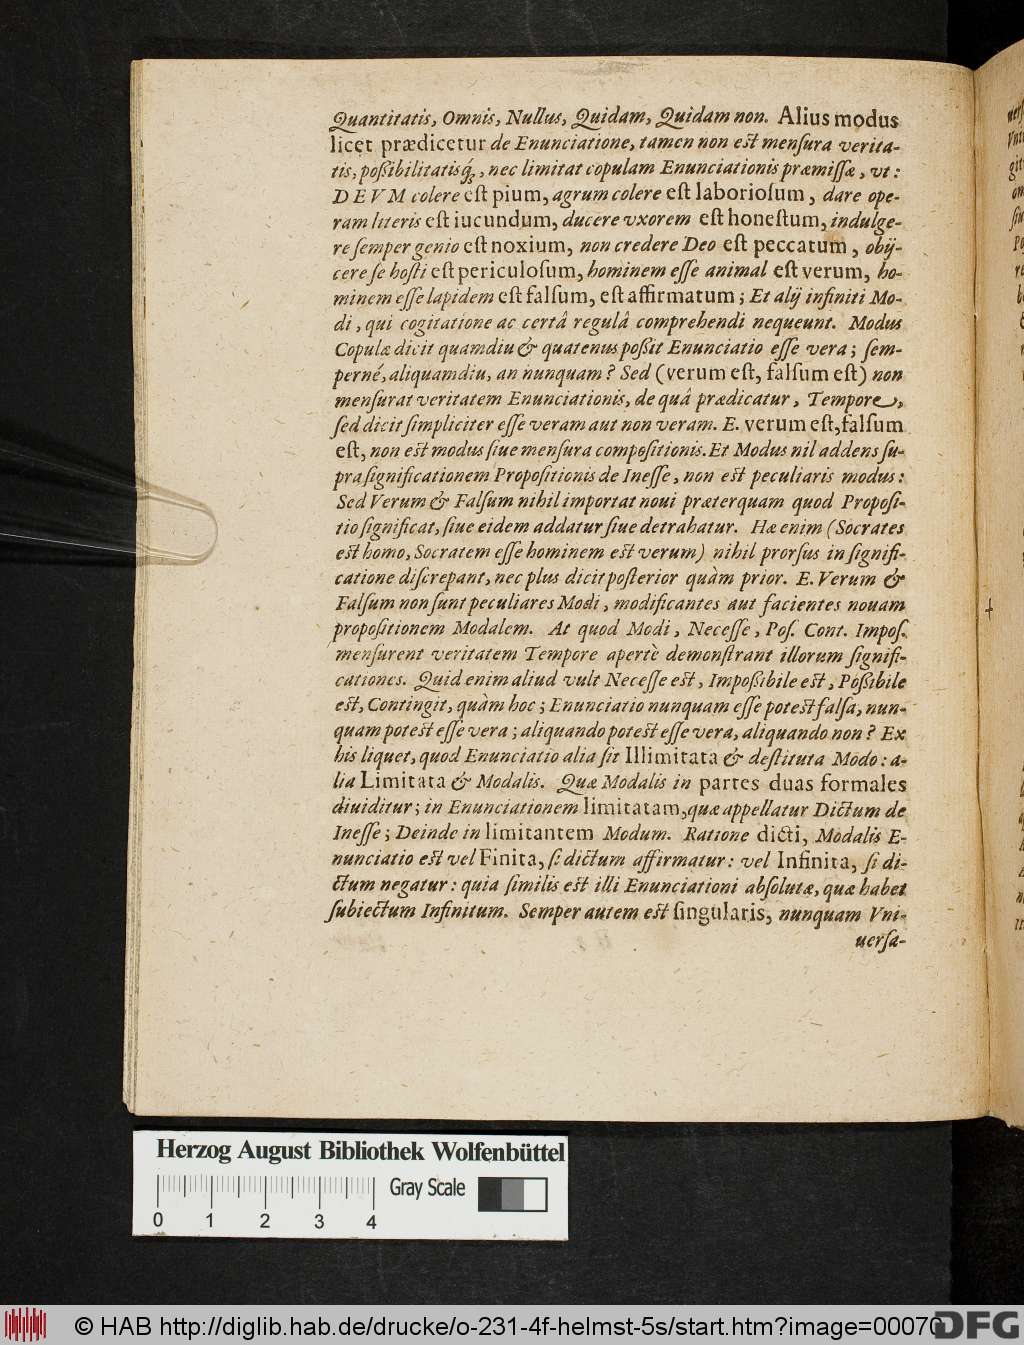 Quantitatis, Omnis, Nullus, Quidam, Quidam non. Alius modus
licet prædicetur de Enunciatione, tamen non est mensura verita-
tis, poßibilitatisq́;, nec limitat copulam Enunciationis præmissæ, vt:
DEVM colere est pium, agrum colere est laboriosum, dare ope-
ram literis est iucundum, ducere vxorem est honestum, indulge-
re semper genio est noxium, non credere Deo est peccatum, obij-
cere se hosti est periculosum, hominem esse animal est verum, ho-
minem esse lapidem est falsum, est affirmatum; Et alij infiniti Mo-
di, qui cogitatione ac certâ regulâ comprehendi nequeunt. Modus
Copulæ dicit quamdiu & quatenus poßit Enunciatio esse vera; sem-
perné, aliquamdiu, an nunquam? Sed (verum est, falsum est) non
mensurat veritatem Enunciationis, de quâ prædicatur, Tempore,
sed dicit simpliciter esse veram aut non veram. E. verum est, falsum
est, non est modus siue mensura compositionis. Et Modus nil addens su-
pra significationem Propositionis de Inesse, non est peculiaris modus:
Sed Verum & Falsum nihil importat noui præterquam quod Proposi-
tio significat, siue eidem addatur siue detrahatur. Hæ enim (Socrates
est homo, Socratem esse hominem est verum) nihil prorsus in signifi-
catione discrepant, nec plus dicit posterior quàm prior. E. Verum &
Falsum non sunt peculiares Modi, modificantes aut facientes nouam
propositionem Modalem. At quod Modi, Necesse, Pos. Cont. Impos.
mensurent veritatem Tempore apertè demonstrant illorum signifi-
cationes. Quid enim aliud vult Necesse est, Impoßibile est, Poßibile
est, Contingit, quàm hoc; Enunciatio nunquam esse potest falsa, nun-
quam potest esse vera; aliquando potest esse vera, aliquando non? Ex
his liquet, quod Enunciatio alia sit Illimitata & destituta Modo: a-
lia Limitata & Modalis. Quæ Modalis in partes duas formales
diuiditur; in Enunciationem limitatam, quæ appellatur Dictum de
Inesse; Deinde in limitantem Modum. Ratione dicti, Modalis E-
nunciatio est vel Finita, si dictum affirmatur: vel Infinita, si di-
ctum negatur: quia similis est illi Enunciationi absolutæ, quæ habet
subiectum Infinitum. Semper autem est singularis, nunquam Vni-
uersa-
Herzog August Bibliothek Wolfenbüttel
Gray Scale
0 1 2 3 4
© HAB http://diglib.hab.de/drucke/o-231-4f-helmst-5s/start.htm?image=00070
DFG